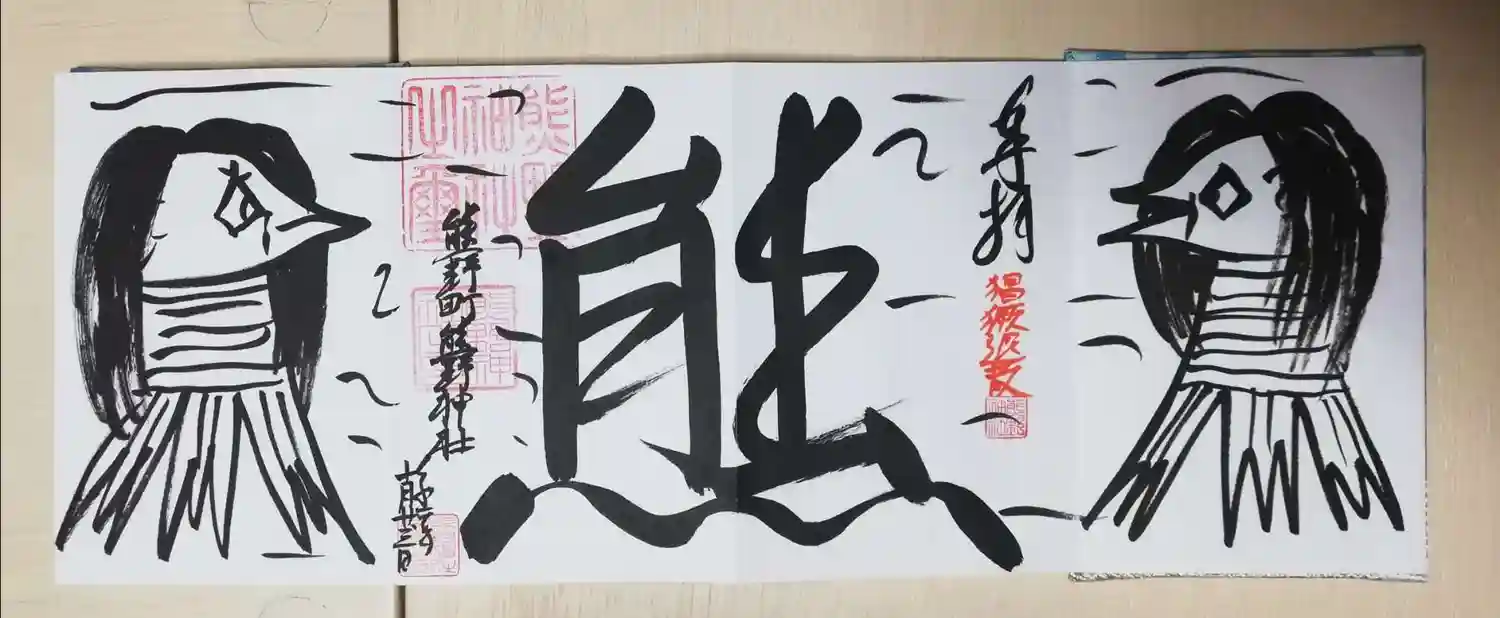 奉拝
猖獗退散
熊
熊野神社之璽
熊野町熊野神社